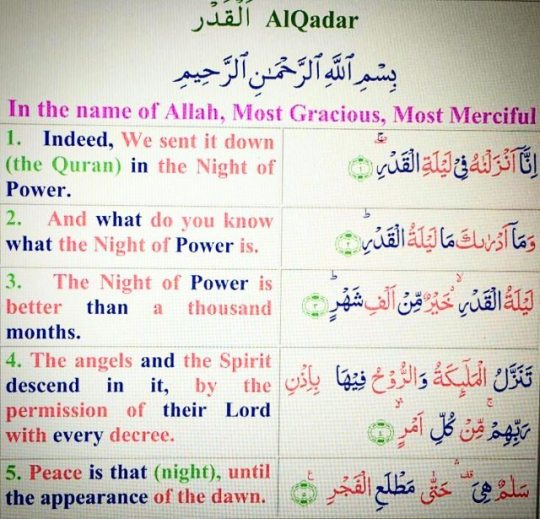 اَلْقَدْر AlQadar
بِسْمِ اللَّهِ الرَّحْمَٰنِ الرَّحِيمِ
In the name of Allah, Most Gracious, Most Merciful
1. Indeed, We sent it down
(the Quran) in the Night of
Power.
اِنَّاۤ اَنْزَلْنٰهُ فِیْ لَیْلَةِ الْقَدْرِ ۚۖ ﴿۱﴾
2. And what do you know
what the Night of Power is.
وَمَاۤ اَدْرٰىكَ مَا لَیْلَةُ الْقَدْرِ ؕ ﴿۲﴾
3. The Night of Power is
better than a thousand
months.
لَیْلَةُ الْقَدْرِ ۙ خَیْرٌ مِّنْ اَلْفِ شَهْرٍ ؕ ﴿۳﴾
4. The angels and the Spirit
descend in it, by the
permission of their Lord
with every decree.
تَنَزَّلُ الْمَلٰٓىِٕكَةُ وَالرُّوْحُ فِیْهَا بِاِذْنِ
رَبِّهِمْ ۚ مِّنْ كُلِّ اَمْرٍ ۙ ﴿۴﴾
5. Peace is that (night), until
the appearance of the dawn.
سَلٰمٌ ۛ هِیَ حَتّٰی مَطْلَعِ الْفَجْرِ ﴿۵﴾